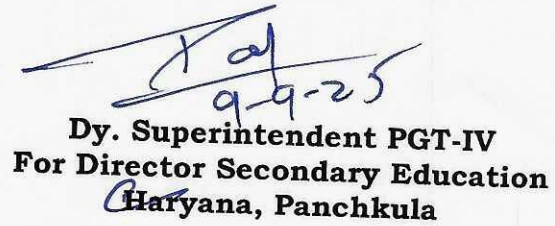 9-9-25
Dy. Superintendent PGT-IV
For Director Secondary Education
Haryana, Panchkula